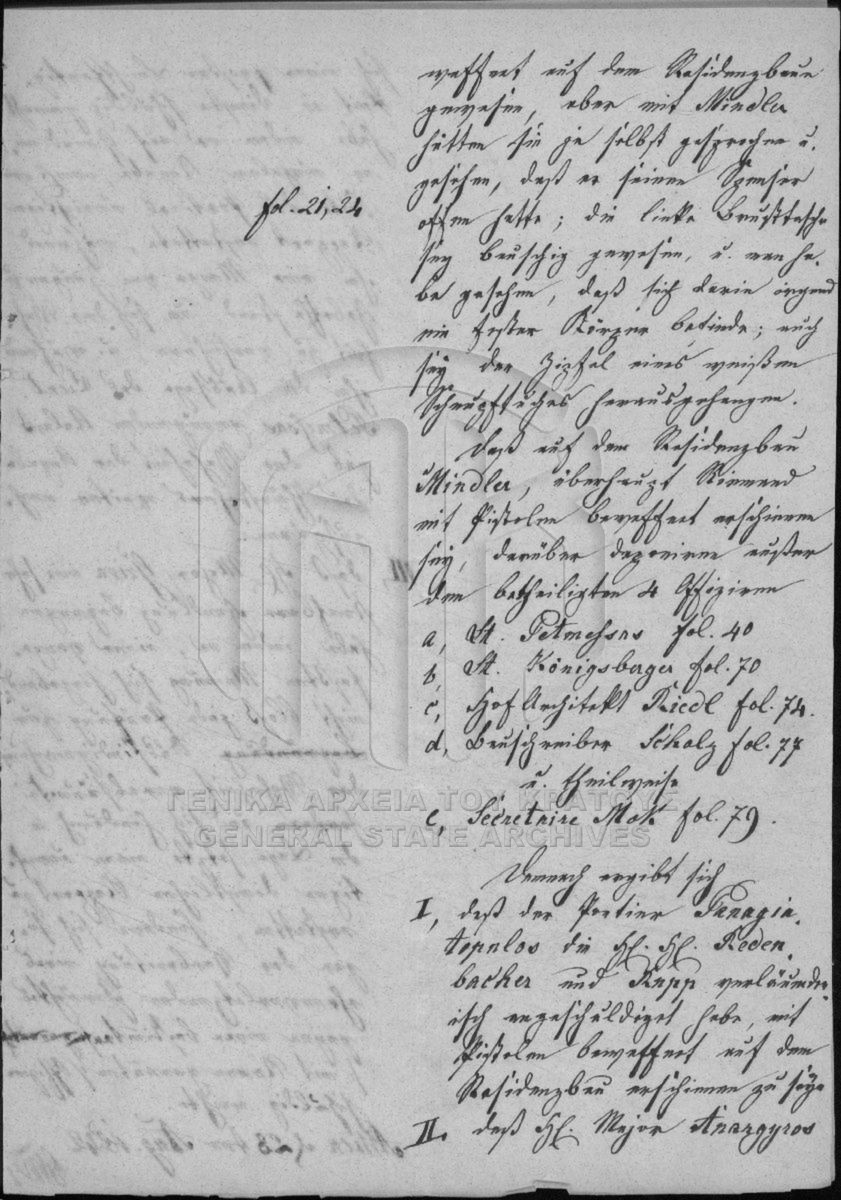 waffnet auf dem Residenzbaue
gewesen, aber mit Mindler
hätten sie ja selbst gesprochen u.
gesehen, daß er seinen Spenser
fol. 21, 24
offen hatte; die linke Brusttasche
sey bauschig gewesen, u. man ha-
be gesehen, daß sich darin irgend
ein fester Körper befinde; auch
sey der Zipfel eines weißen
Schnupftuches herausgehangen.
Daß auf dem Residenzbau
Mindler, überhaupt Niemand
mit Pistolen bewaffnet erschienen
sey, darüber deponiren außer
den betheiligten 4 Offiziren
a, Lt. Petmesas fol. 40
b, Lt. Königsberger fol. 70
c, Hof Architekt Riedl fol. 74.
d, Bauschreiber Scholz fol. 77
u. theilweise
e, Secretaire Mok fol. 79.
Demnach ergibt sich
I, daß der Portier Panagia-
topulos die H. H. Reden-
bacher und Rupp verläumder-
isch angeschuldiget habe, mit
Pistolen bewaffnet auf dem
Residenzbau erschienen zu seyn
II. daß H. Major Anargyros
ΓΕΝΙΚΑ ΑΡΧΕΙΑ ΤΟΥ ΚΡΑΤΟΥΣ
GENERAL STATE ARCHIVES